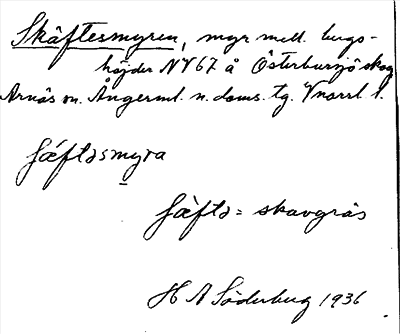 Skäftesmyren, myr mell. bergs-
höjder NV 67 å Österbursjö skog
Arnäs sn. Ångerml. n. doms. tg. Vnorrl. l.
ʃæ̀ftəsmyra
ʃæftə = skavgräs
H A Söderberg 1936